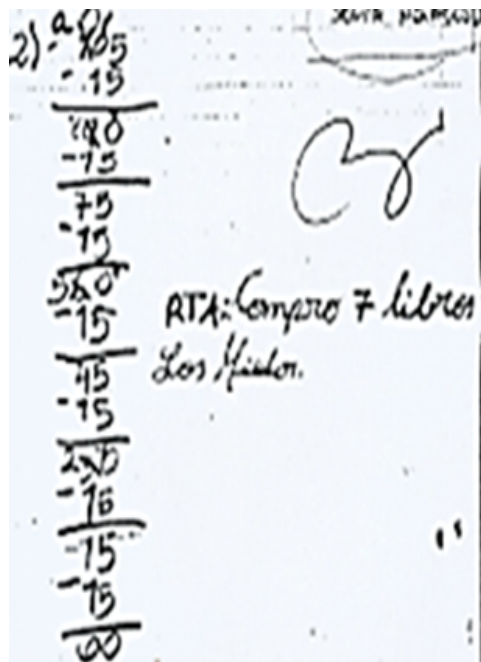 2) 105
- 15
90
- 15
75
- 15
60
- 15
45
- 15
30
- 15
15
- 15
00
RTA: Compro 7 libros
Los